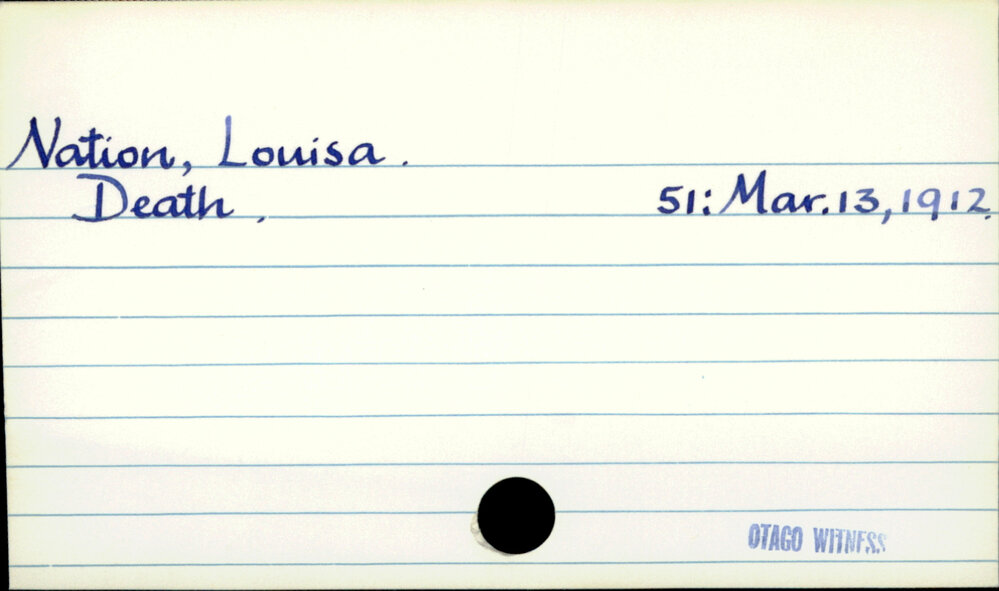 Nation, Louisa.
Death. 51: Mar. 13, 1912.
OTAGO WITNESS